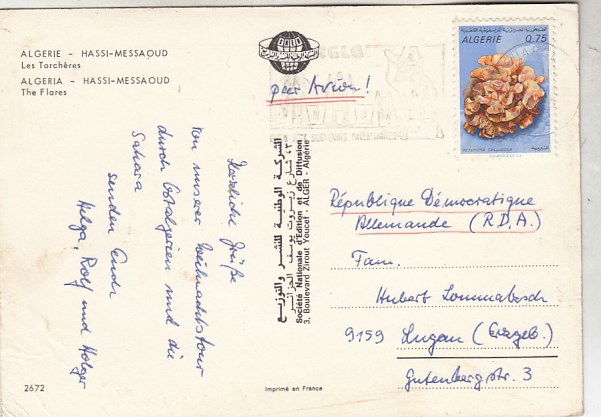 ALGERIE - HASSI-MESSAOUD
Les Torchères
ALGERIA - HASSI-MESSAOUD
The Flares
par Avion!
ALGERIE 0.75
Herzliche Grüße
von unserer Weihnachtstour
durch Ostalgerien und die
Sahara
senden Euch
Helga, Rolf und Holger
الشركة الوطنية للنشر والتوزيع
٣ شارع زيروت يوسف الجزائر
Société Nationale d'Edition et de Diffusion
3, Boulevard Zirout Youcef - ALGER - Algérie
République Démocratique
Allemande (R.D.A.)
Fam.
Hubert Lommatzsch
9159 Lugau (Erzgeb.)
Gutenbergstr. 3
2672
Imprimé en France